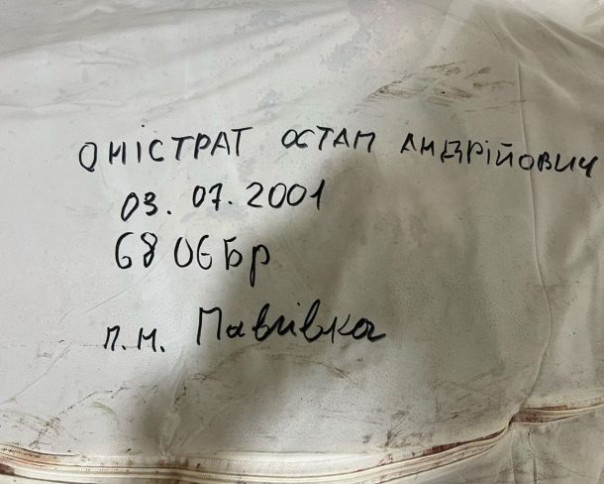 ОНІСТРАТ ОСТАП АНДРІЙОВИЧ
03.07.2001
68 ОЄБр
п.н. Павлівка